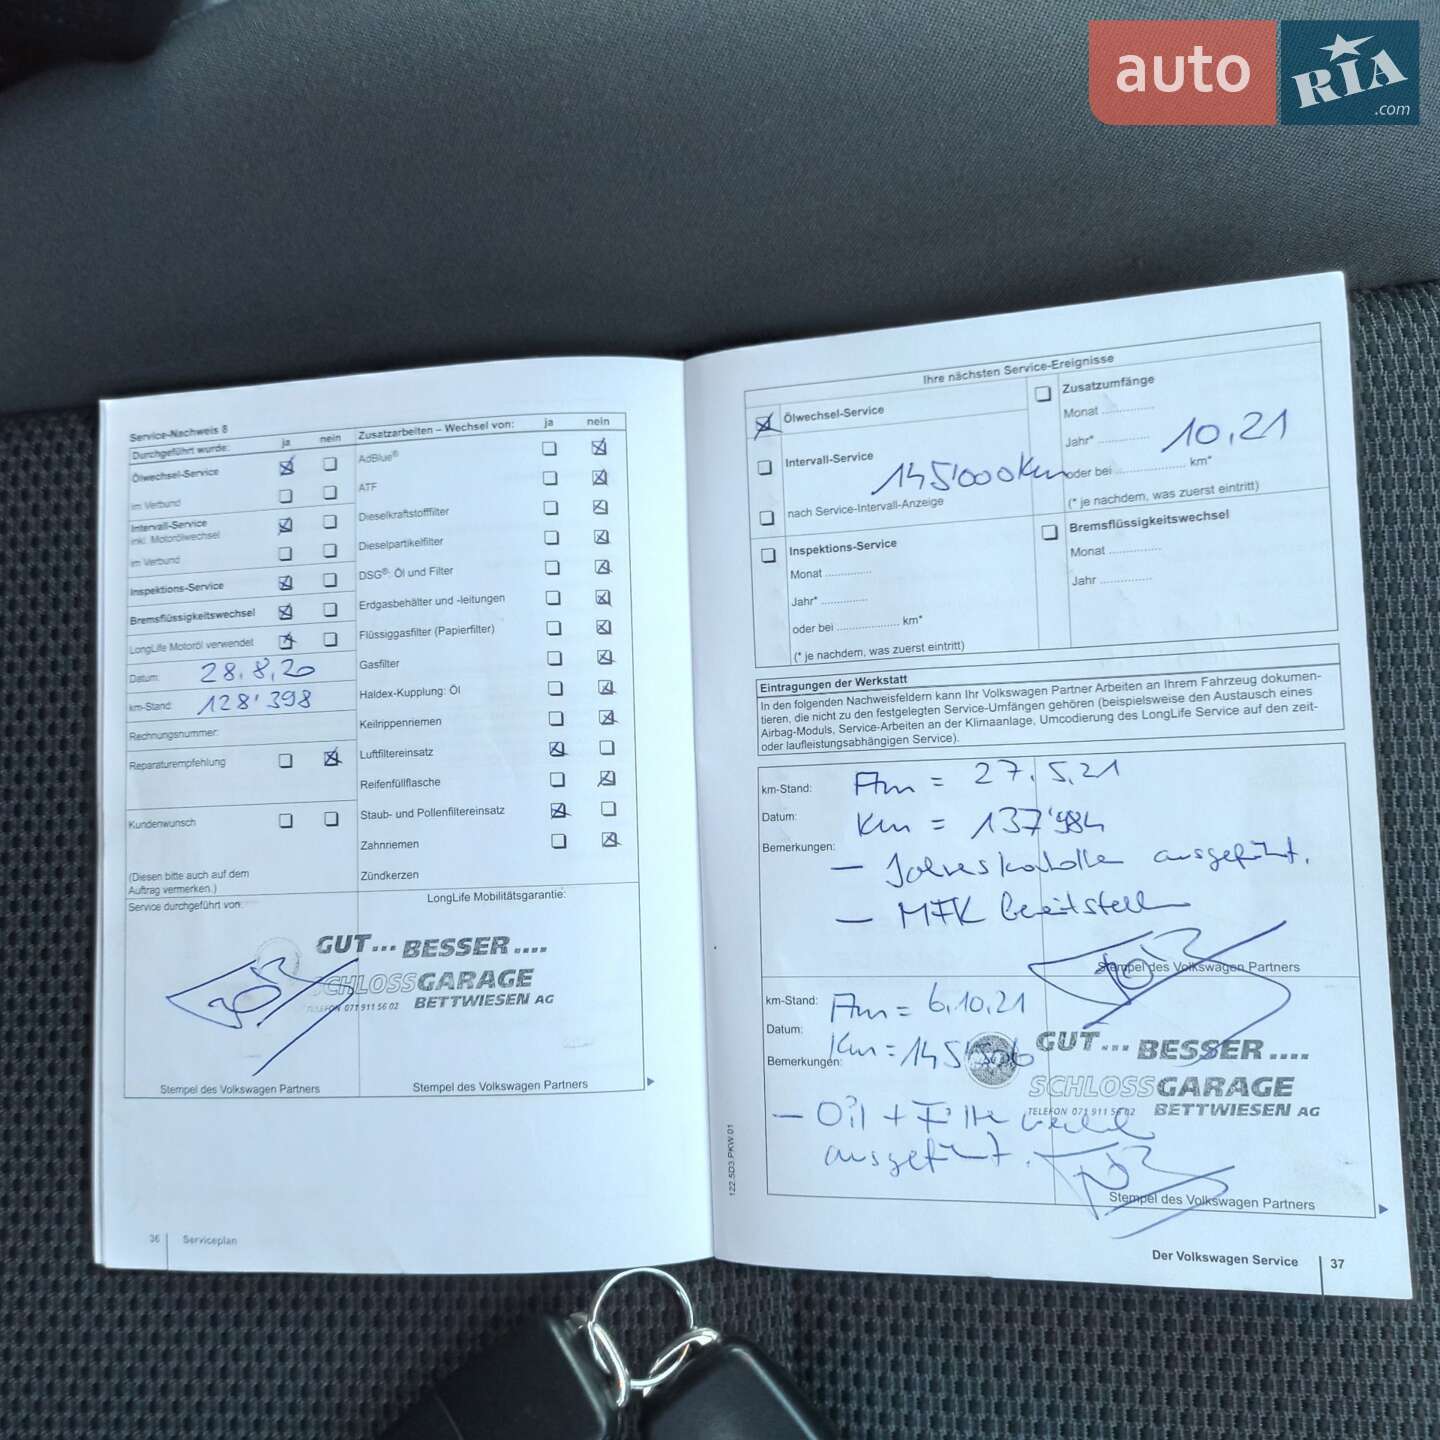 auto RIA.com
Service-Nachweis 8
Durchgeführt wurde: ja nein
Ölwechsel-Service
im Verbund
Intervall-Service
inkl. Motorölwechsel
im Verbund
Inspektions-Service
Bremsflüssigkeitswechsel
LongLife Motoröl verwendet
Datum: 28.8.20
km-Stand: 128'398
Rechnungsnummer:
Reparaturempfehlung
Kundenwunsch
(Diesen bitte auch auf dem
Auftrag vermerken.)
Service durchgeführt von:
Zusatzarbeiten – Wechsel von: ja nein
AdBlue®
ATF
Dieselkraftstofffilter
Dieselpartikelfilter
DSG®: Öl und Filter
Erdgasbehälter und -leitungen
Flüssiggasfilter (Papierfilter)
Gasfilter
Haldex-Kupplung: Öl
Keilrippenriemen
Luftfiltereinsatz
Reifenfüllflasche
Staub- und Pollenfiltereinsatz
Zahnriemen
Zündkerzen
LongLife Mobilitätsgarantie:
GUT... BESSER....
SCHLOSSGARAGE
TELEFON 071 911 56 02 BETTWIESEN AG
Stempel des Volkswagen Partners
Stempel des Volkswagen Partners
36 Serviceplan
Ihre nächsten Service-Ereignisse
Ölwechsel-Service
Intervall-Service
145'000 Km
nach Service-Intervall-Anzeige
Inspektions-Service
Monat ..............
Jahr* ..............
oder bei .................... km*
(* je nachdem, was zuerst eintritt)
Zusatzumfänge
Monat ...............
Jahr* .............. 10.21
oder bei .................... km*
(* je nachdem, was zuerst eintritt)
Bremsflüssigkeitswechsel
Monat ...............
Jahr ...............
Eintragungen der Werkstatt
In den folgenden Nachweisfeldern kann Ihr Volkswagen Partner Arbeiten an Ihrem Fahrzeug dokumen-
tieren, die nicht zu den festgelegten Service-Umfängen gehören (beispielsweise den Austausch eines
Airbag-Moduls, Service-Arbeiten an der Klimaanlage, Umcodierung des LongLife Service auf den zeit-
oder laufleistungsabhängigen Service).
km-Stand: Am = 27.5.21
Datum: Km = 137'984
Bemerkungen:
– Jahreskontrolle ausgeführt.
– MFK bereitstellen
Stempel des Volkswagen Partners
km-Stand: Am = 6.10.21
Datum:
Km =
Bemerkungen:
GUT... BESSER....
SCHLOSSGARAGE
TELEFON 071 911 56 02 BETTWIESEN AG
– Oil + Filter
ausgeführt.
Stempel des Volkswagen Partners
122.5D3.PKW.01
Der Volkswagen Service 37